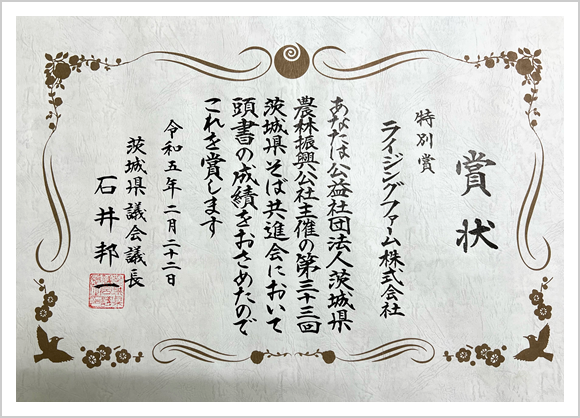 賞状
特別賞
ライジングファーム株式会社
あなたは公益社団法人茨城県
農林振興公社主催の第三十三回
茨城県そば共進会において
頭書の成績をおさめたので
これを賞します
令和五年二月二十二日
茨城県議会議長
石井邦一